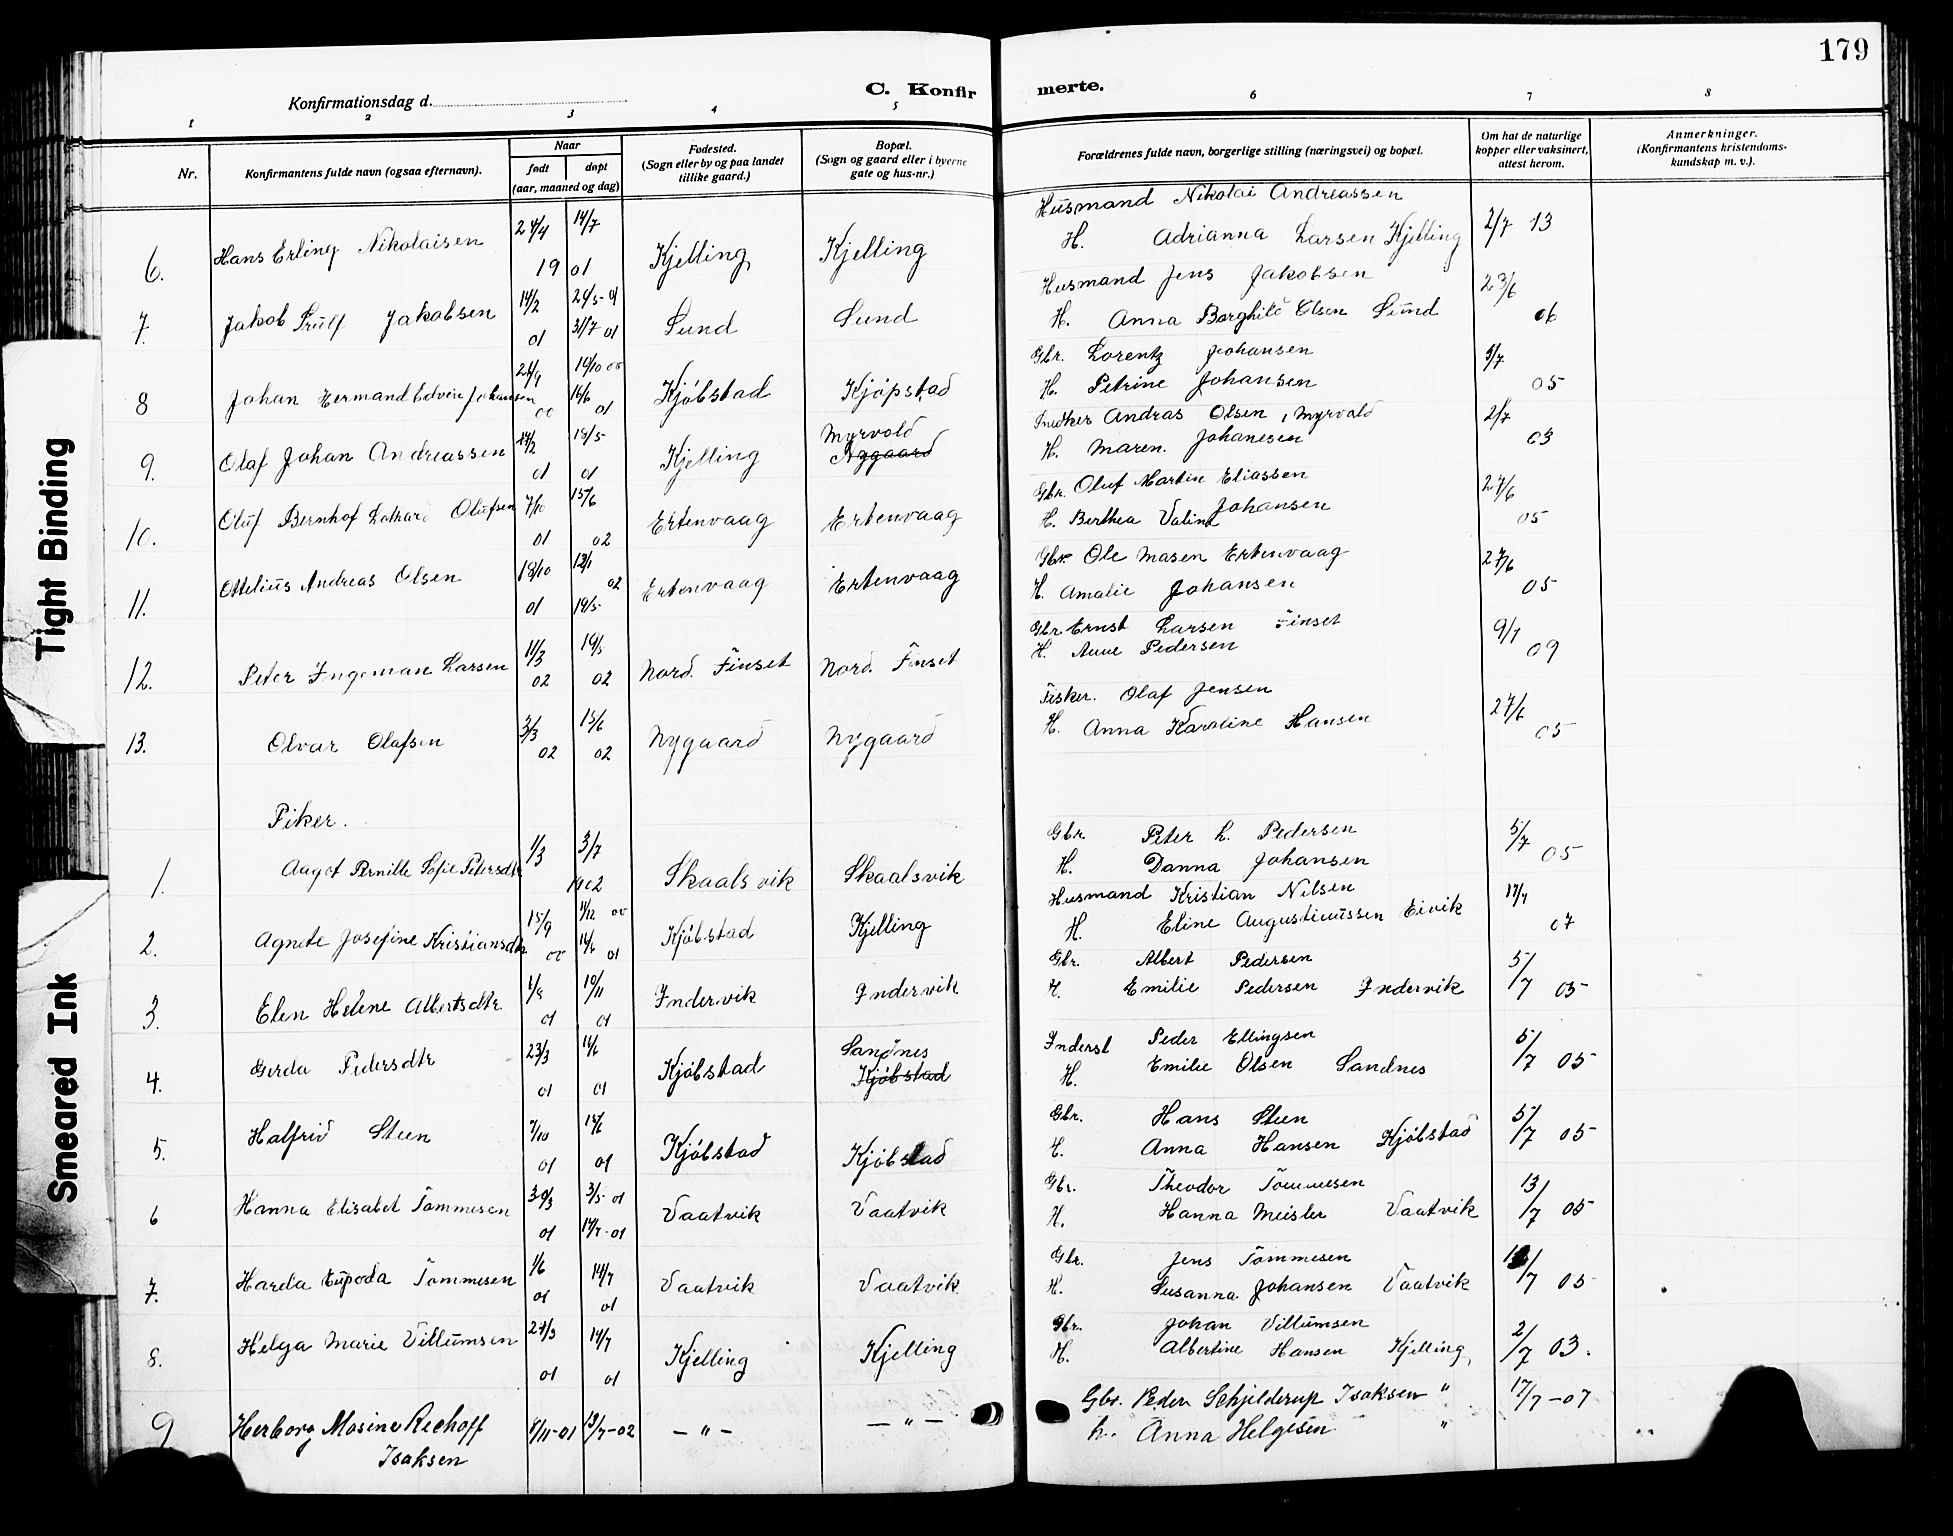 179
Konfirmationsdag d.
C. Konfir
merte.
1 2 3 4 5 6 7 8
Nr.
Konfirmantens fulde navn (ogsaa efternavn).
Naar
født døpt
(aar, maaned og dag)
Fødested.
(Sogn eller by og paa landet
tillike gaard.)
Bopæl.
(Sogn og gaard eller i byerne
gate og hus-nr.)
Forældrenes fulde navn, borgerlige stilling (næringsvei) og bopæl.
Om hat de naturlige
kopper eller vaksinert,
attest herom.
Anmerkninger.
(Konfirmantens kristendoms-
kundskap m. v.).
Husmand Nikolai Andreassen
6. Hans Erling Nikolaisen 24/4 14/7 1901 Kjelling Kjelling H. Adrianna Larsen Kjelling 2/7 13
Husmand Jens Jakobsen
7. Jakob Jakobsen 14/2 01 31/7 01 Sund Sund H. Anna Borghild Olsen Sund 23/6 06
Gbr. Lorentz Johansen
8 Johan Hermand Edvin Johansen 00 19/10 00 16/6 01 Kjöbstad Kjöpstad H. Petrine Johansen 5/7 05
Andras Olsen, Myrvold
9. Olaf Johan Andreassen 01 18/5 01 Kjelling Myrvold Nygaard H. Maren Johanesen 2/7 03
Gbr. Oluf Martin Eliassen
10. Oluf Bernhof Lothard Olufsen 7/10 01 15/6 02 Ertenvaag Ertenvaag H. Berthea Valine Johansen 27/6 05
Gbr. Ole Masen Ertenvaag
11. Ottelius Andreas Olsen 18/10 01 02 19/5 Ertenvaag Ertenvaag H. Amalie Johansen 27/6 05
Gbr Ernst Larsen Finset
12. Peter Ingeman Larsen 11/3 02 19/5 02 Nord. Finset Nord. Finset H. Anne Pedersen 9/7 09
Fisker. Olaf Jensen
13. Olvar Olafsen 3/3 02 15/6 02 Nygaard Nygaard H. Anna Karoline Hansen 27/6 05
Piker.
Gbr Peter L. Pedersen
1. Aagot Pernille Sofie Petersdtr 1/3 3/7 1902 Skaalsvik Skaalsvik H. Danna Johansen 5/7 05
Husmand Kristian Nilsen
2. Agnete Josefine Kristiansdtr 15/9 00 11/12 00 16/6 01 Kjöbstad Kjelling H. Eline Augustinussen Eivik 17/7 07
Gbr. Albert Pedersen
3. Elen Helene Albertsdtr 1/8 01 10/11 01 Indervik Indervik H. Emilie Pedersen Indervik 5/7 05
Inderst Peder Ellingsen
4. Gerda Pedersdtr 23/3 01 16/6 01 Kjöbstad Sandnes Kjöbstad H. Emilie Olsen Sandnes 5/7 05
Gbr. Hans Steen
5. Halfrid Steen 7/10 01 15/6 01 Kjöbstad Kjöbstad H. Anna Hansen Kjöbstad 5/7 05
Gbr. Theodor Tömmesen
6 Hanna Elisabet Tömmesen 30/3 01 3/5-01 14/7-01 Vaatvik Vaatvik H. Hanna Meisler Vaatvik 13/7 05
Gbr. Jens Tömmesen
7. Harda Tömmesen 1/6 01 14/7 01 Vaatvik Vaatvik H. Susanna Johansen Vaatvik 13/7 05
Gbr. Johan Villumsen
8. Helga Marie Villumsen 27/3 01 14/7 01 Kjelling Kjelling H. Albertine Hansen Kjelling 2/7 03.
Gbr. Peder Schjelderup Isaksen "
9 Herborg Mosine Rechoff Isaksen 8/11-01 13/7-02 - " - - " - h. Anna Helgesen " 17/7-07
Tight Binding
Smeared Ink